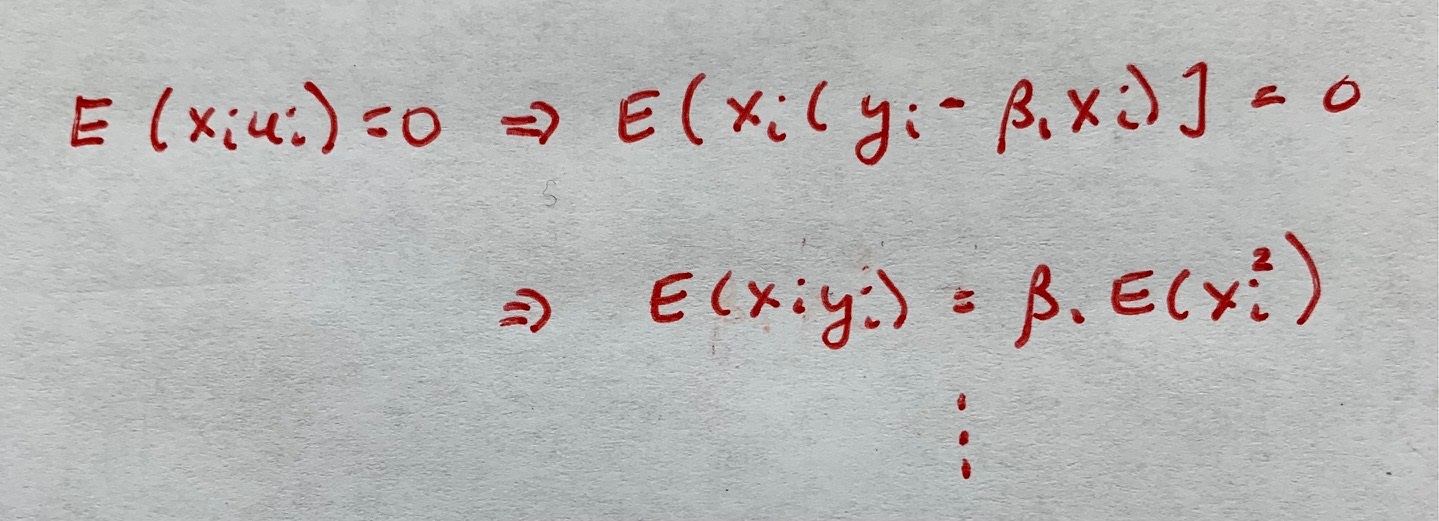 E (xᵢuᵢ) = 0 ⇒ E( xᵢ( yᵢ - β₁xᵢ) ] = 0
⇒ E(xᵢyᵢ) = β₁ E(xᵢ²)
⋮